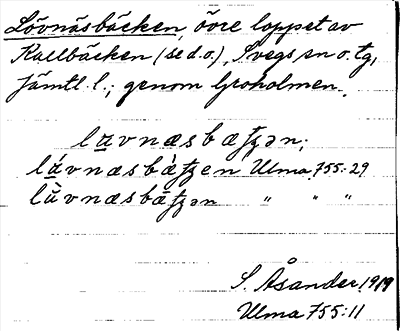 Lövnäsbäcken, övre loppet av
Kallbäcken (se d.o.), Svegs sn o. tg,
Jämtl. l.; genom Groholmen.
lavnæsbæƫʒən;
lávnæsbæ̀ƫʒen Ulma 755:29
lùvnæsbæƫʒən " " "
S. Åsander 1919
Ulma 755:11